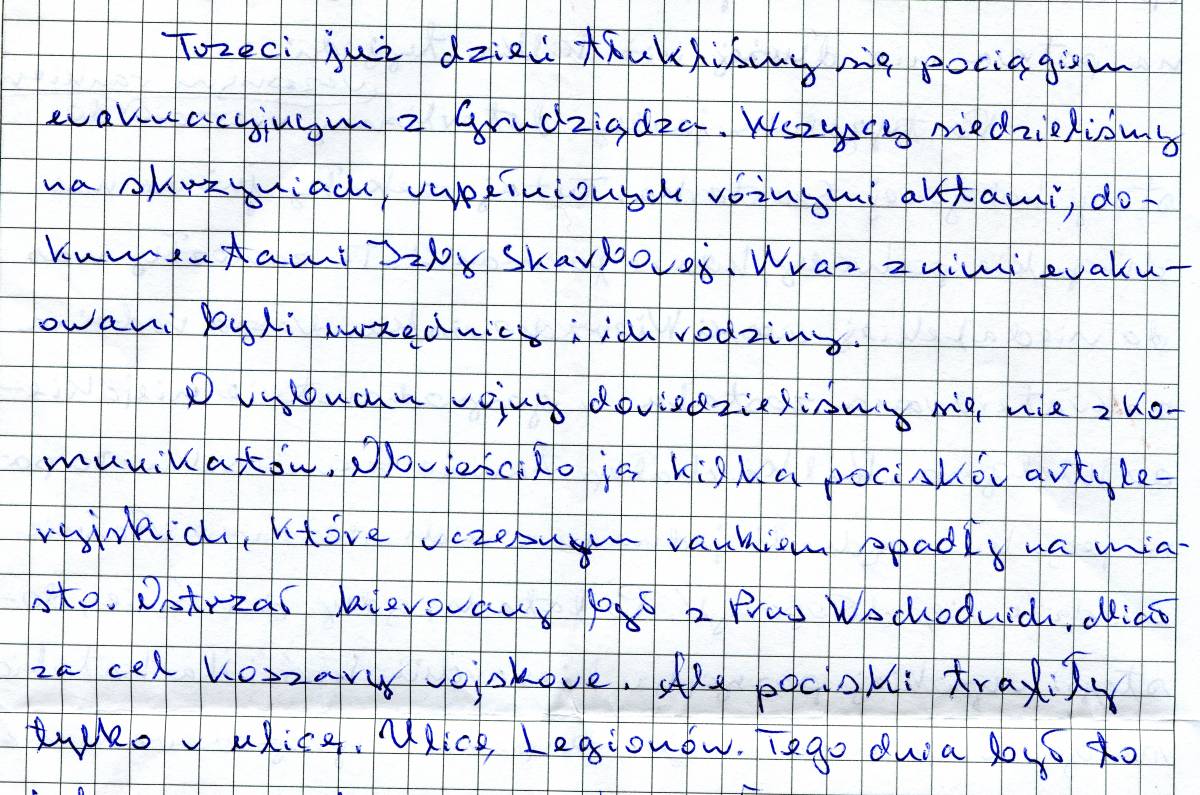 Trzeci już dzień tłukliśmy się pociągiem
ewakuacyjnym z Grudziądza. Wszyscy siedzieliśmy
na skrzyniach, wypełnionych różnymi aktami, do-
kumentami Izby Skarbowej. Wraz z nimi ewaku-
owani byli urzędnicy i ich rodziny.
O wybuchu wojny dowiedzieliśmy się nie z ko-
munikatów. Obwieściło ją kilka pocisków artyle-
ryjskich, które wczesnym rankiem spadły na mia-
sto. Ostrzał kierowany był z Prus Wschodnich. Miał
za cel koszary wojskowe. Ale pociski trafiły
tylko w ulicę. Ulicę Legionów. Tego dnia był to